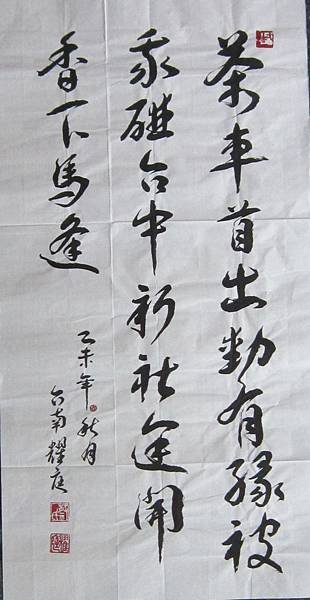 茶車首出動有緣被
我碰台中新社途聞
香下馬逢
乙未年秋月
台南耀庭